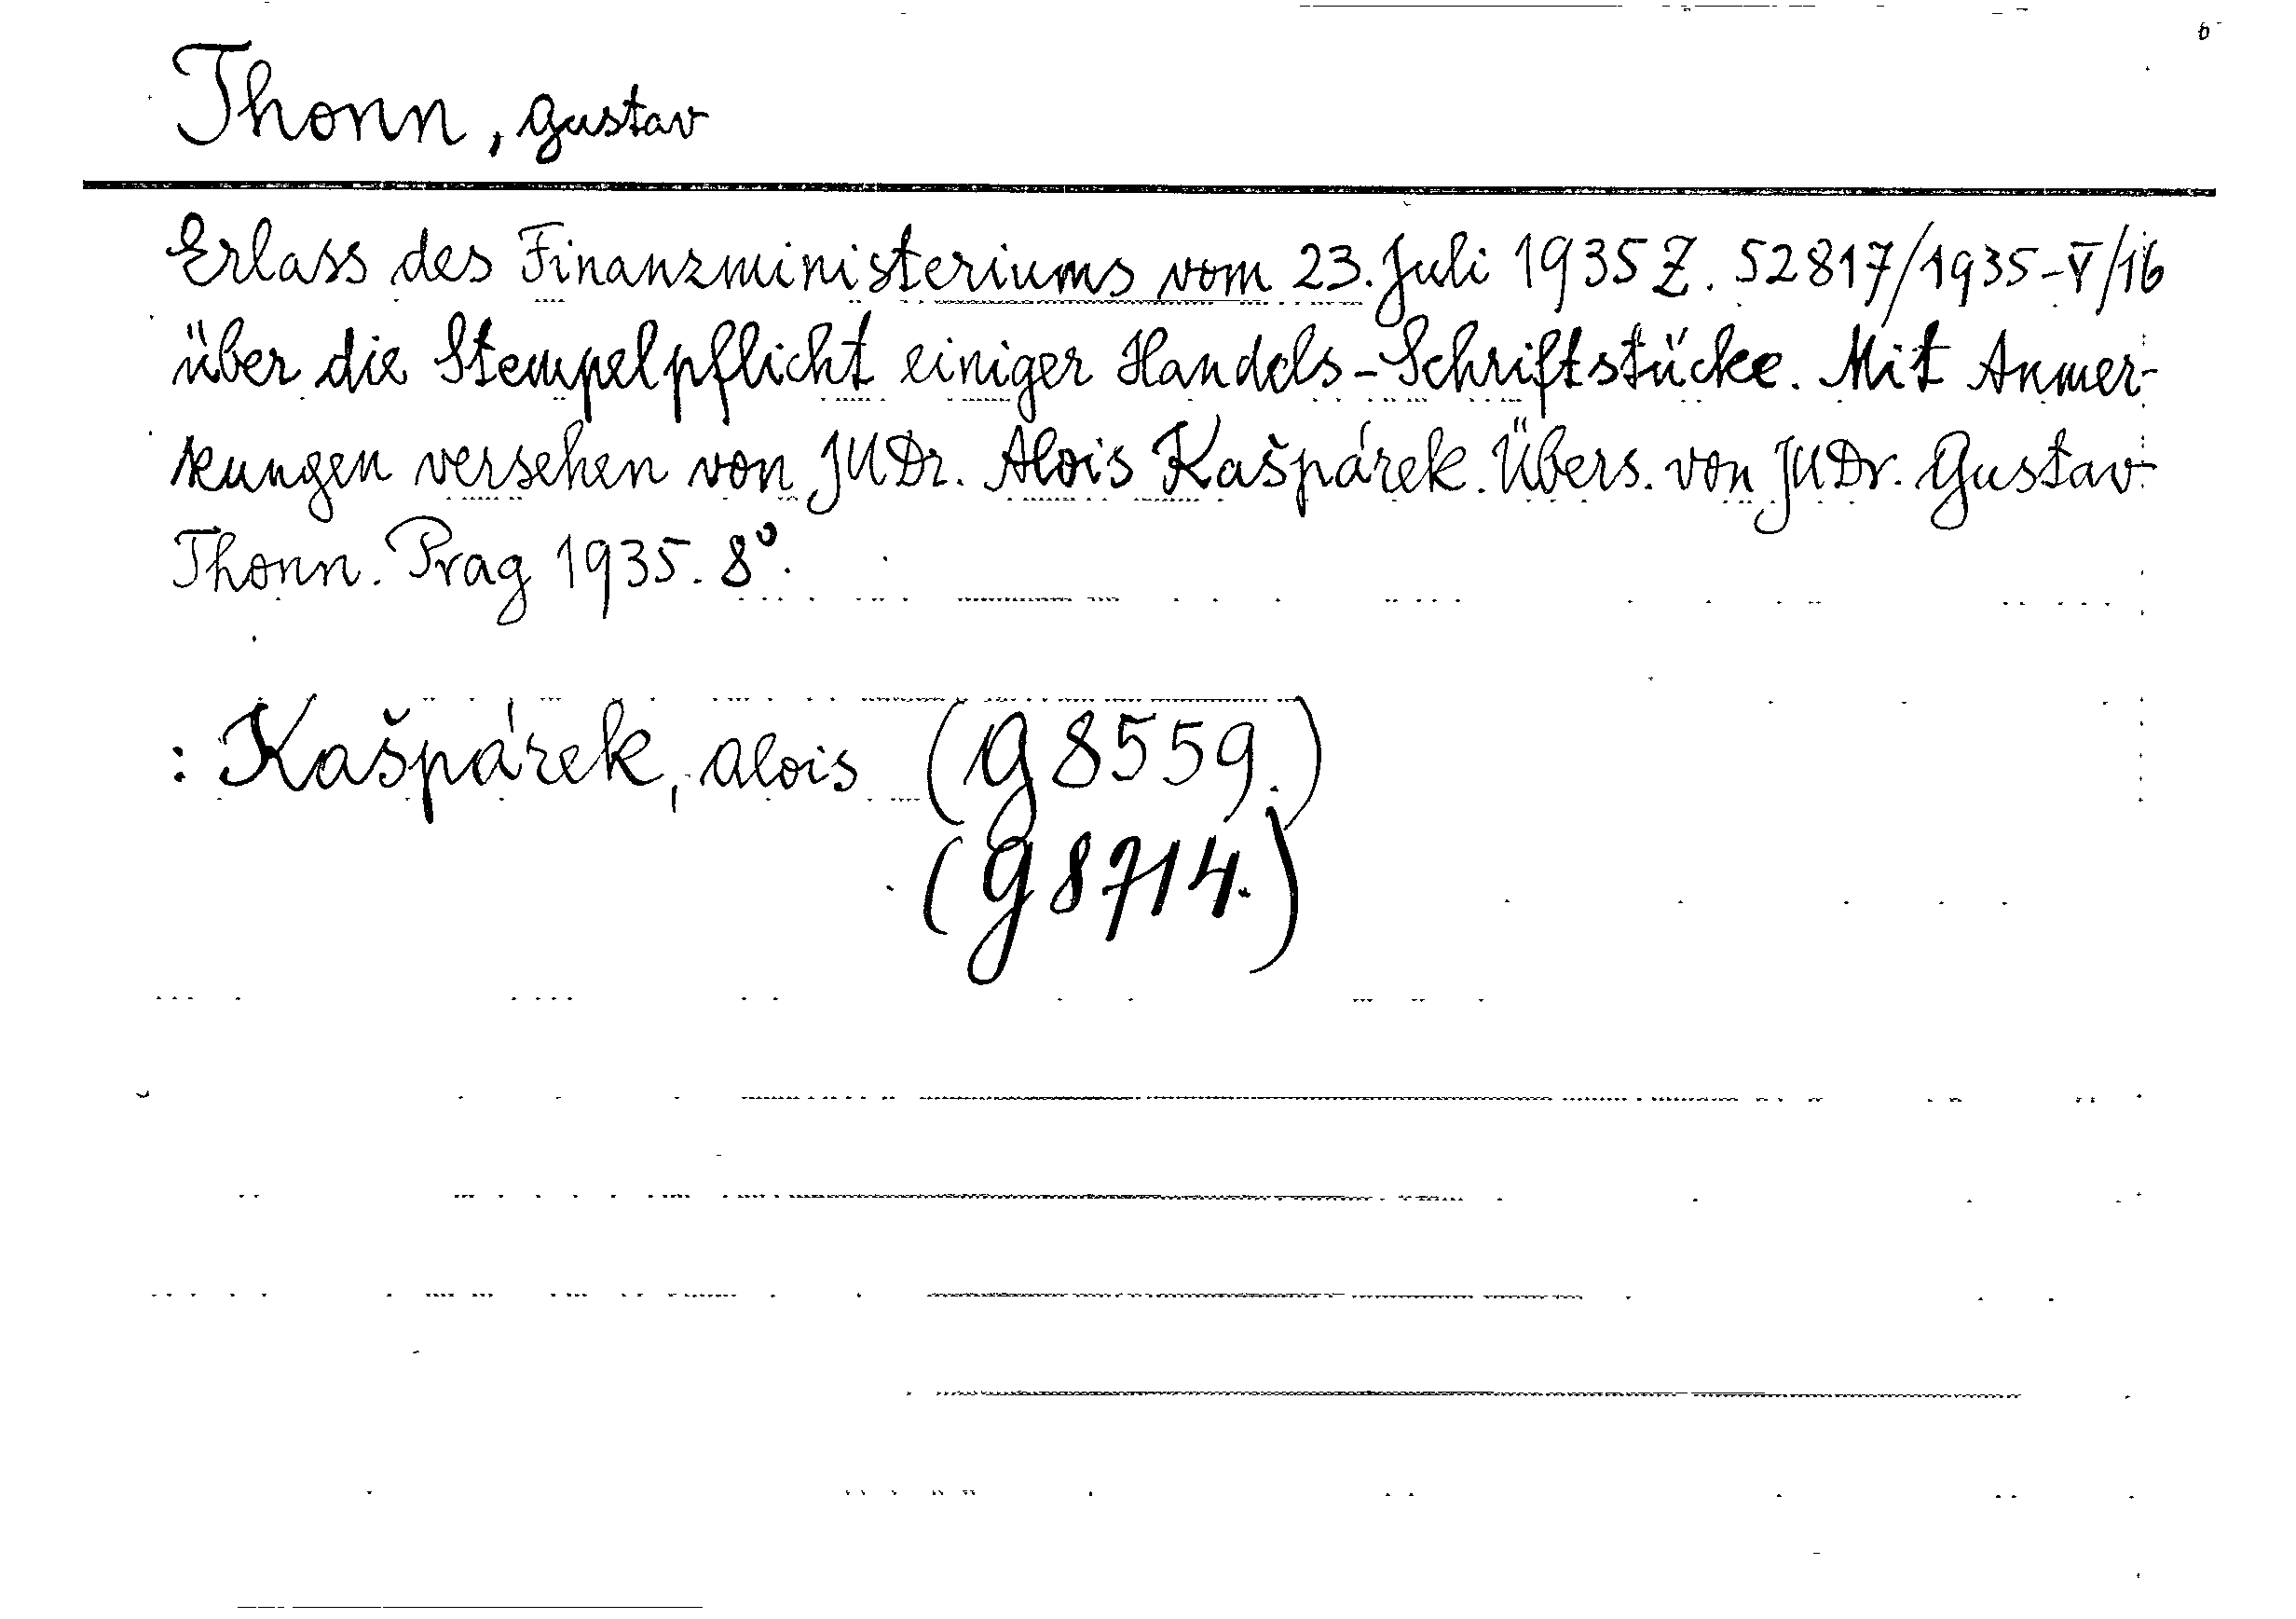 Thonn, Gustav
Erlass des Finanzministeriums vom 23. Juli 1935 Z. 52817/1935-V/16
über die Stempelpflicht einiger Handels-Schriftstücke. Mit Anmer-
kungen versehen von JUDr. Alois Kašpárek. Übers. von JUDr. Gustav
Thonn. Prag 1935. 8°.
: Kašpárek, Alois (G 8559.)
(G 8714.)